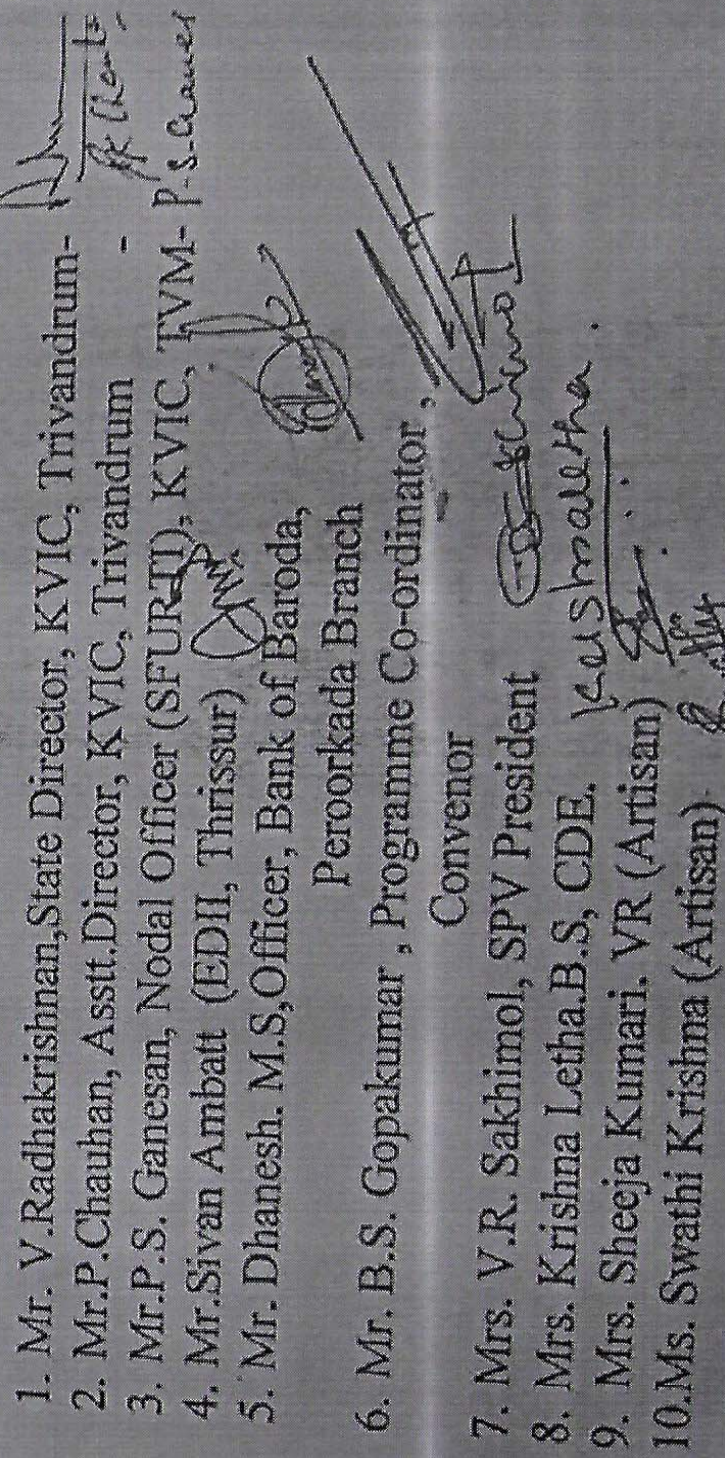 1. Mr. V.Radhakrishnan,State Director, KVIC, Trivandrum-
2. Mr.P.Chauhan, Asstt.Director, KVIC, Trivandrum -
3. Mr.P.S. Ganesan, Nodal Officer (SFURTI), KVIC, TVM-
4. Mr.Sivan Ambatt (EDII, Thrissur)
5. Mr. Dhanesh. M.S,Officer, Bank of Baroda,
Peroorkada Branch
6. Mr. B.S. Gopakumar , Programme Co-ordinator ,
Convenor
7. Mrs. V.R. Sakhimol, SPV President
8. Mrs. Krishna Letha.B.S, CDE.
9. Mrs. Sheeja Kumari. VR (Artisan)
10.Ms. Swathi Krishna (Artisan)